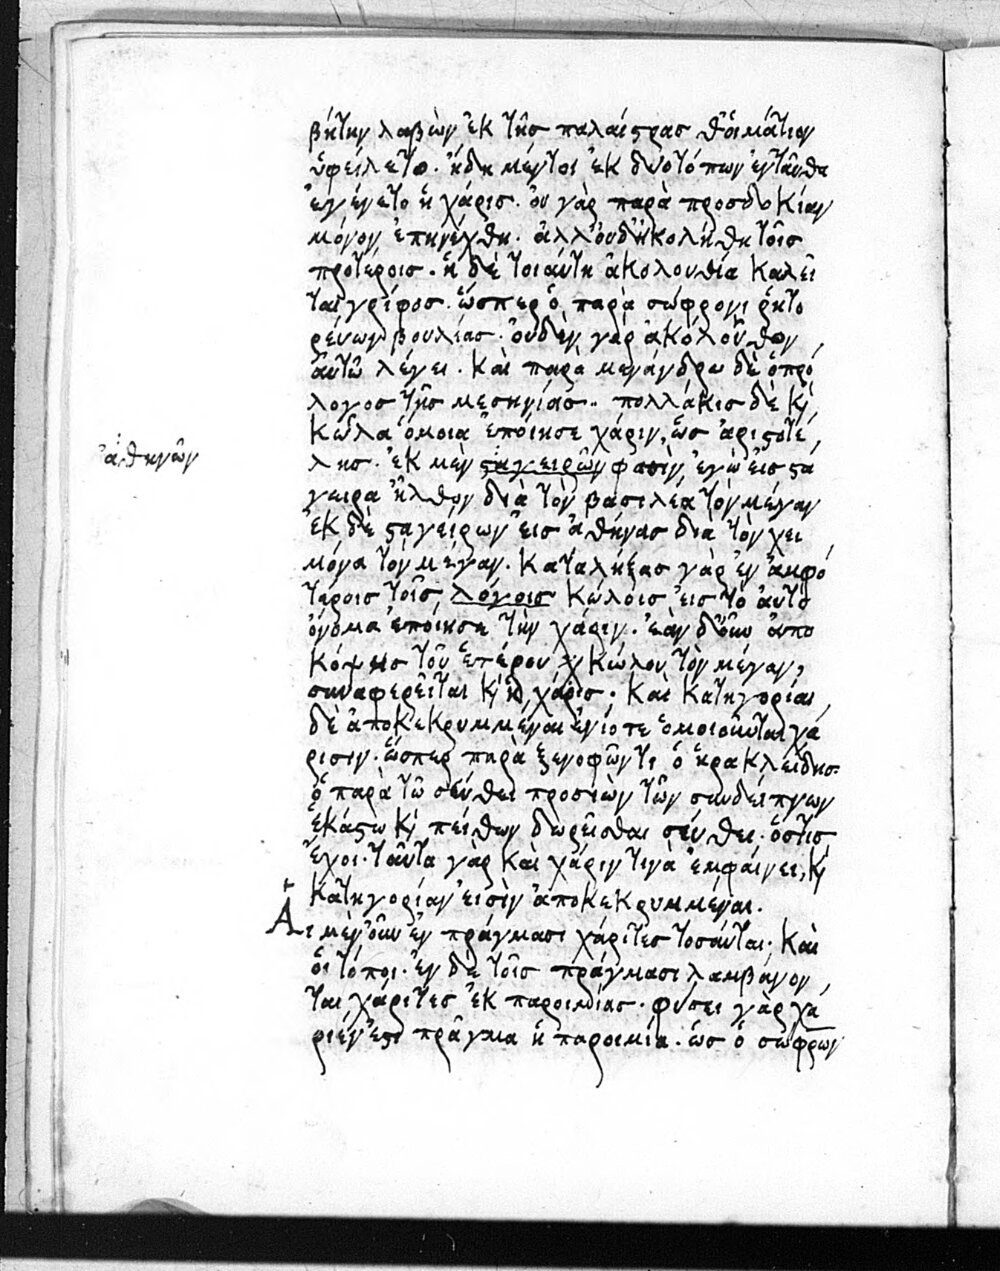 βήτην λαβὼν ἐκ τῆσ παλαίςρασ θοἰμάτιον
ὑφείλετο. ἤδη μέντοι ἐκ δυοτόπων ἐνταῦθα
ἐγένετο ἡ χάρισ. ου γὰρ παρὰ προσδοκίαν
μόνον ἐπηνέχθη. ἀλλ'ουδ'ἠκολήθη τοῖσ
προτέροισ. ἡ δὲ τοιαύτη ἀκολουθία καλεῖ
ται γρίφοσ. ὥσπερ ὁ παρὰ σώφρονι ῥητο
ρέυων βουλίασ. ὀυδὲν γὰρ ἀκόλουθον
ἁυτῶ λέγει. καὶ παρὰ μενάνδρω δὲ ὁπρό
λογοσ τῆσ μεσηνίασ. πολλάκισ δὲ κὶ
κῶλα ὅμοια ἐποίησε χάριν, ὡσ ἀριςοτέ
λησ. ἐκ μὲν ςαγειρῶν φασὶν, ἐγὼ εἰσ ςά
γειρα ἦλθον διὰ τὸν βασιλέα τὸν μέγαν
ἐκ δὲ ςαγείρων εἰσ ἀθήνασ δια τὸν χει
μόνα τὸν μέγαν. καταλήξασ γὰρ ἐν ἀμφό
τέροισ τοῖσ λόγοισ κώλοισ εἰσ τὸ ἀυτὸ
ὄνομα ἐποίησε τὴν χάριν. ἐὰν δ'οῦν ἀπο
κόψησ τοῦ ἑτέρου κώλου τὸν μέγαν,
συναφερεῖται κὶ ἡ χάρισ. καὶ κατηγορίαι
δὲ ἀποκεκρυμμέναι ἐνίοτε ὁμοιοῦνται χά
ρισιν. ὥσπερ παρὰ ξενοφῶντι ὁ ἡρακλείδησ
ὁ παρὰ τῶ σέυθει προσιὼν τῶν συνδείπνων
ἑκάςω κὶ πείθων δωρεῖσθαι σέυθει. ὅστισ
ἔχοι. ταῦτα γὰρ καὶ χάριν τινὰ ἐμφαίνει, κὶ
κατηγορίαν εἰσὶν ἀποκεκρυμμέναι.
Αι μὲν οὖν ἐν πράγμασι χάριτεσ τοσαῦται. καὶ
ὁι τόποι. ἐν δὲ τοῖσ πράγμασι λαμβάνον
ται χάριτεσ ἐκ παροιμίασ. φύσει γὰρ χά
ριέν ἐςι πρᾶγμα ἡ παροιμία. ὡσ ὁ σώφρων
ἀθηνῶν